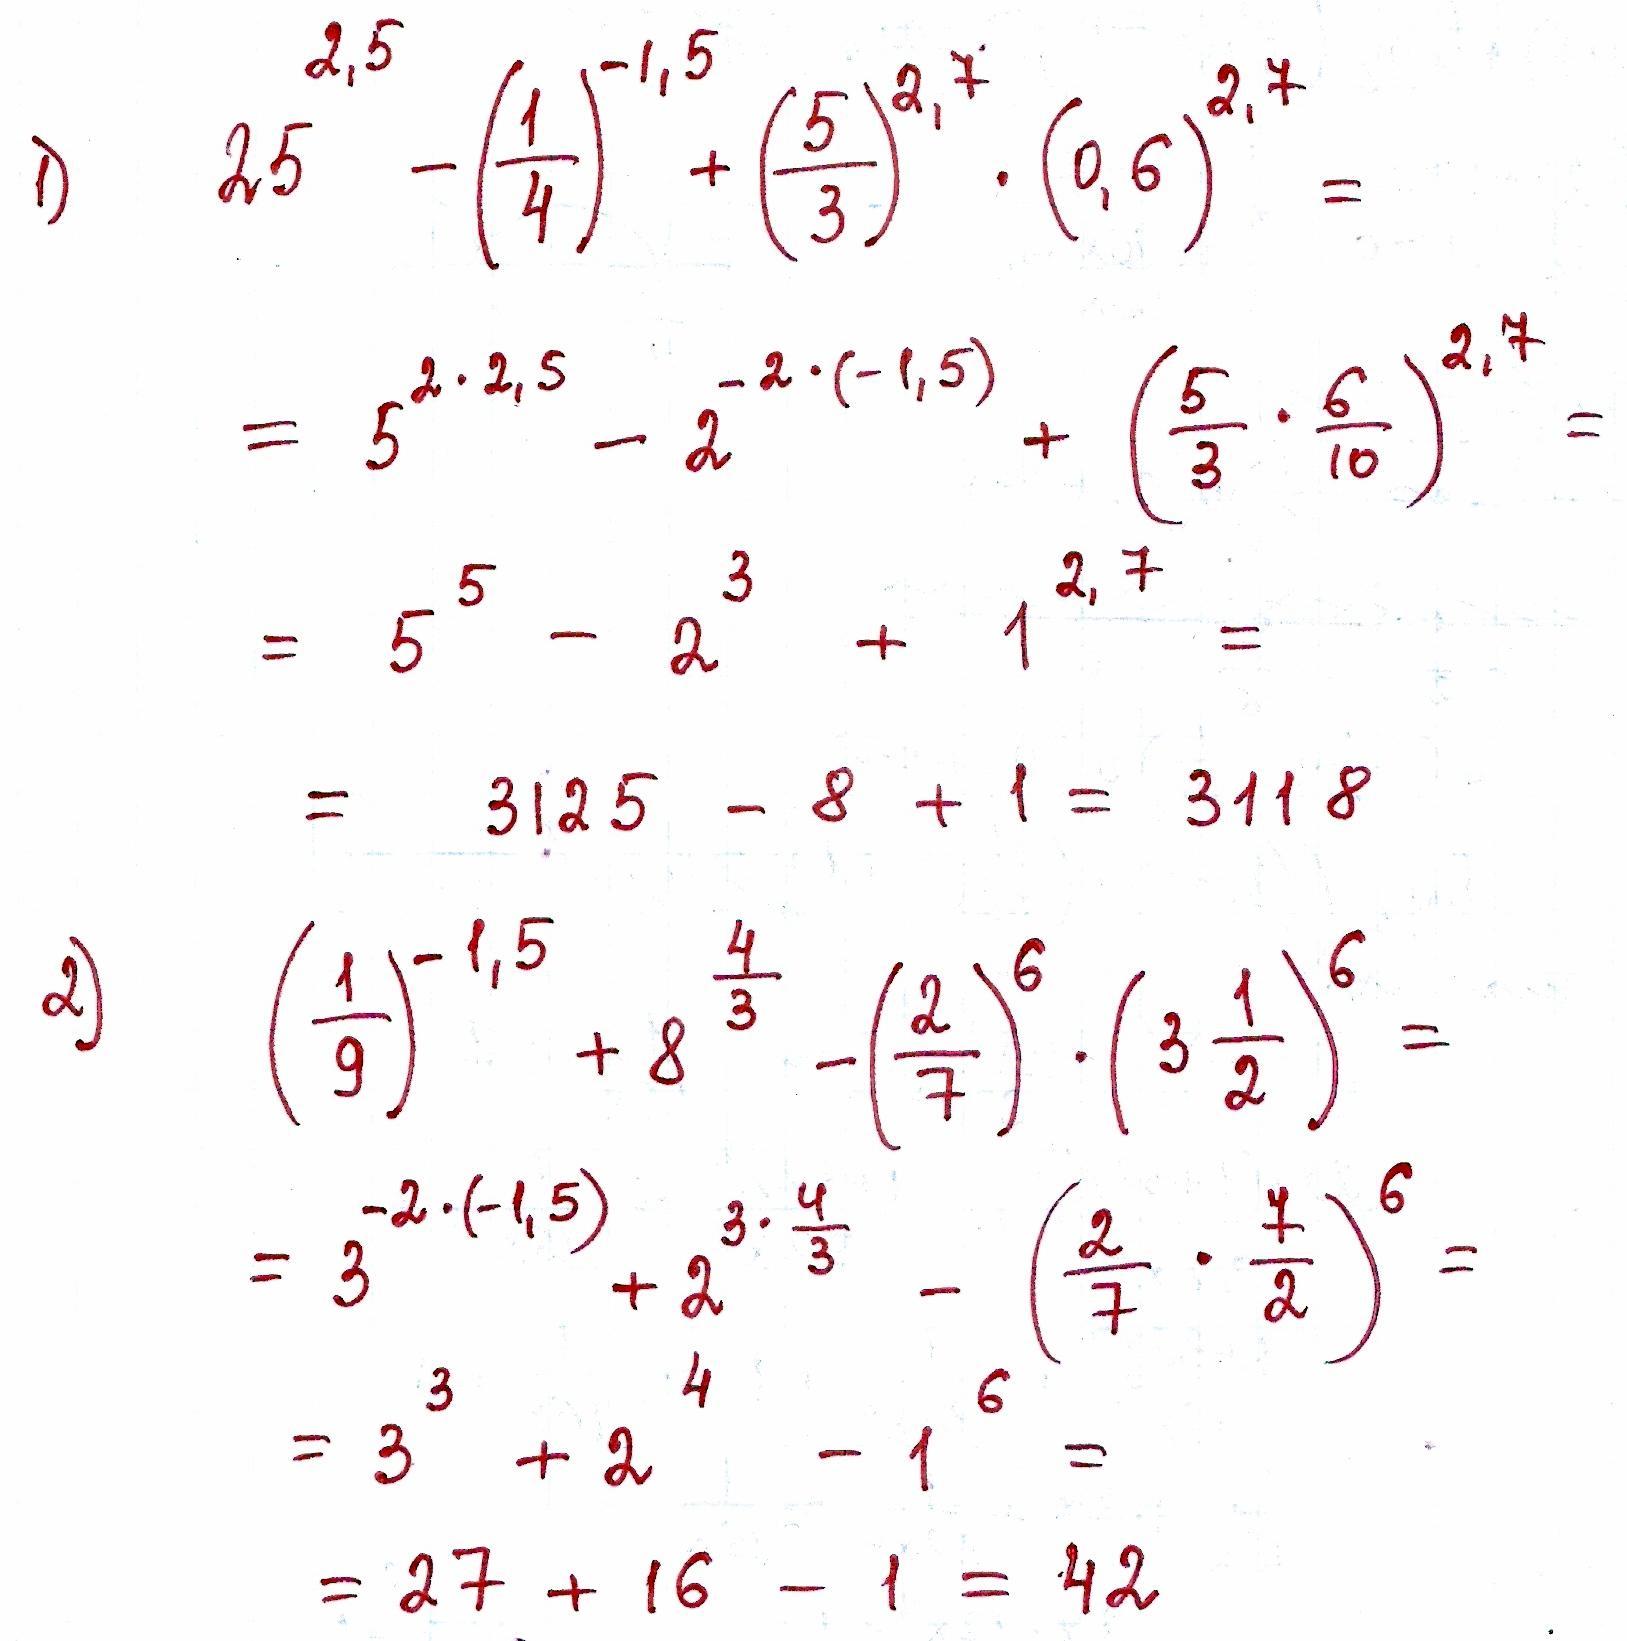 1) 25^{2,5} - (1/4)^{-1,5} + (5/3)^{2,7} · (0,6)^{2,7} =
= 5^{2·2,5} - 2^{-2·(-1,5)} + (5/3 · 6/10)^{2,7} =
= 5^5 - 2^3 + 1^{2,7} =
= 3125 - 8 + 1 = 3118
2) (1/9)^{-1,5} + 8^{4/3} - (2/7)^6 · (3 1/2)^6 =
= 3^{-2·(-1,5)} + 2^{3·4/3} - (2/7 · 7/2)^6 =
= 3^3 + 2^4 - 1^6 =
= 27 + 16 - 1 = 42